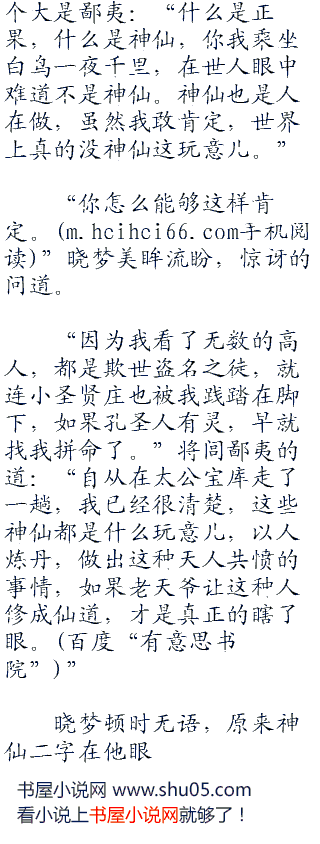 个大是鄙夷：“什么是正
果，什么是神仙，你我乘坐
白鸟一夜千里，在世人眼中
难道不是神仙。神仙也是人
在做，虽然我敢肯定，世界
上真的没神仙这玩意儿。”
“你怎么能够这样肯
定。(m.hcihci66.com手机阅
读)”晓梦美眸流盼，惊讶的
问道。
“因为我看了无数的高
人，都是欺世盗名之徒，就
连小圣贤庄也被我践踏在脚
下，如果孔圣人有灵，早就
找我拼命了。”将闾鄙夷的
道：“自从在太公宝库走了
一趟，我已经很清楚，这些
神仙都是什么玩意儿，以人
炼丹，做出这种天人共愤的
事情，如果老天爷让这种人
修成仙道，才是真正的瞎了
眼。(百度“有意思书
院”)”
晓梦顿时无语，原来神
仙二字在他眼
书屋小说网 www.shu05.com
看小说上书屋小说网就够了！